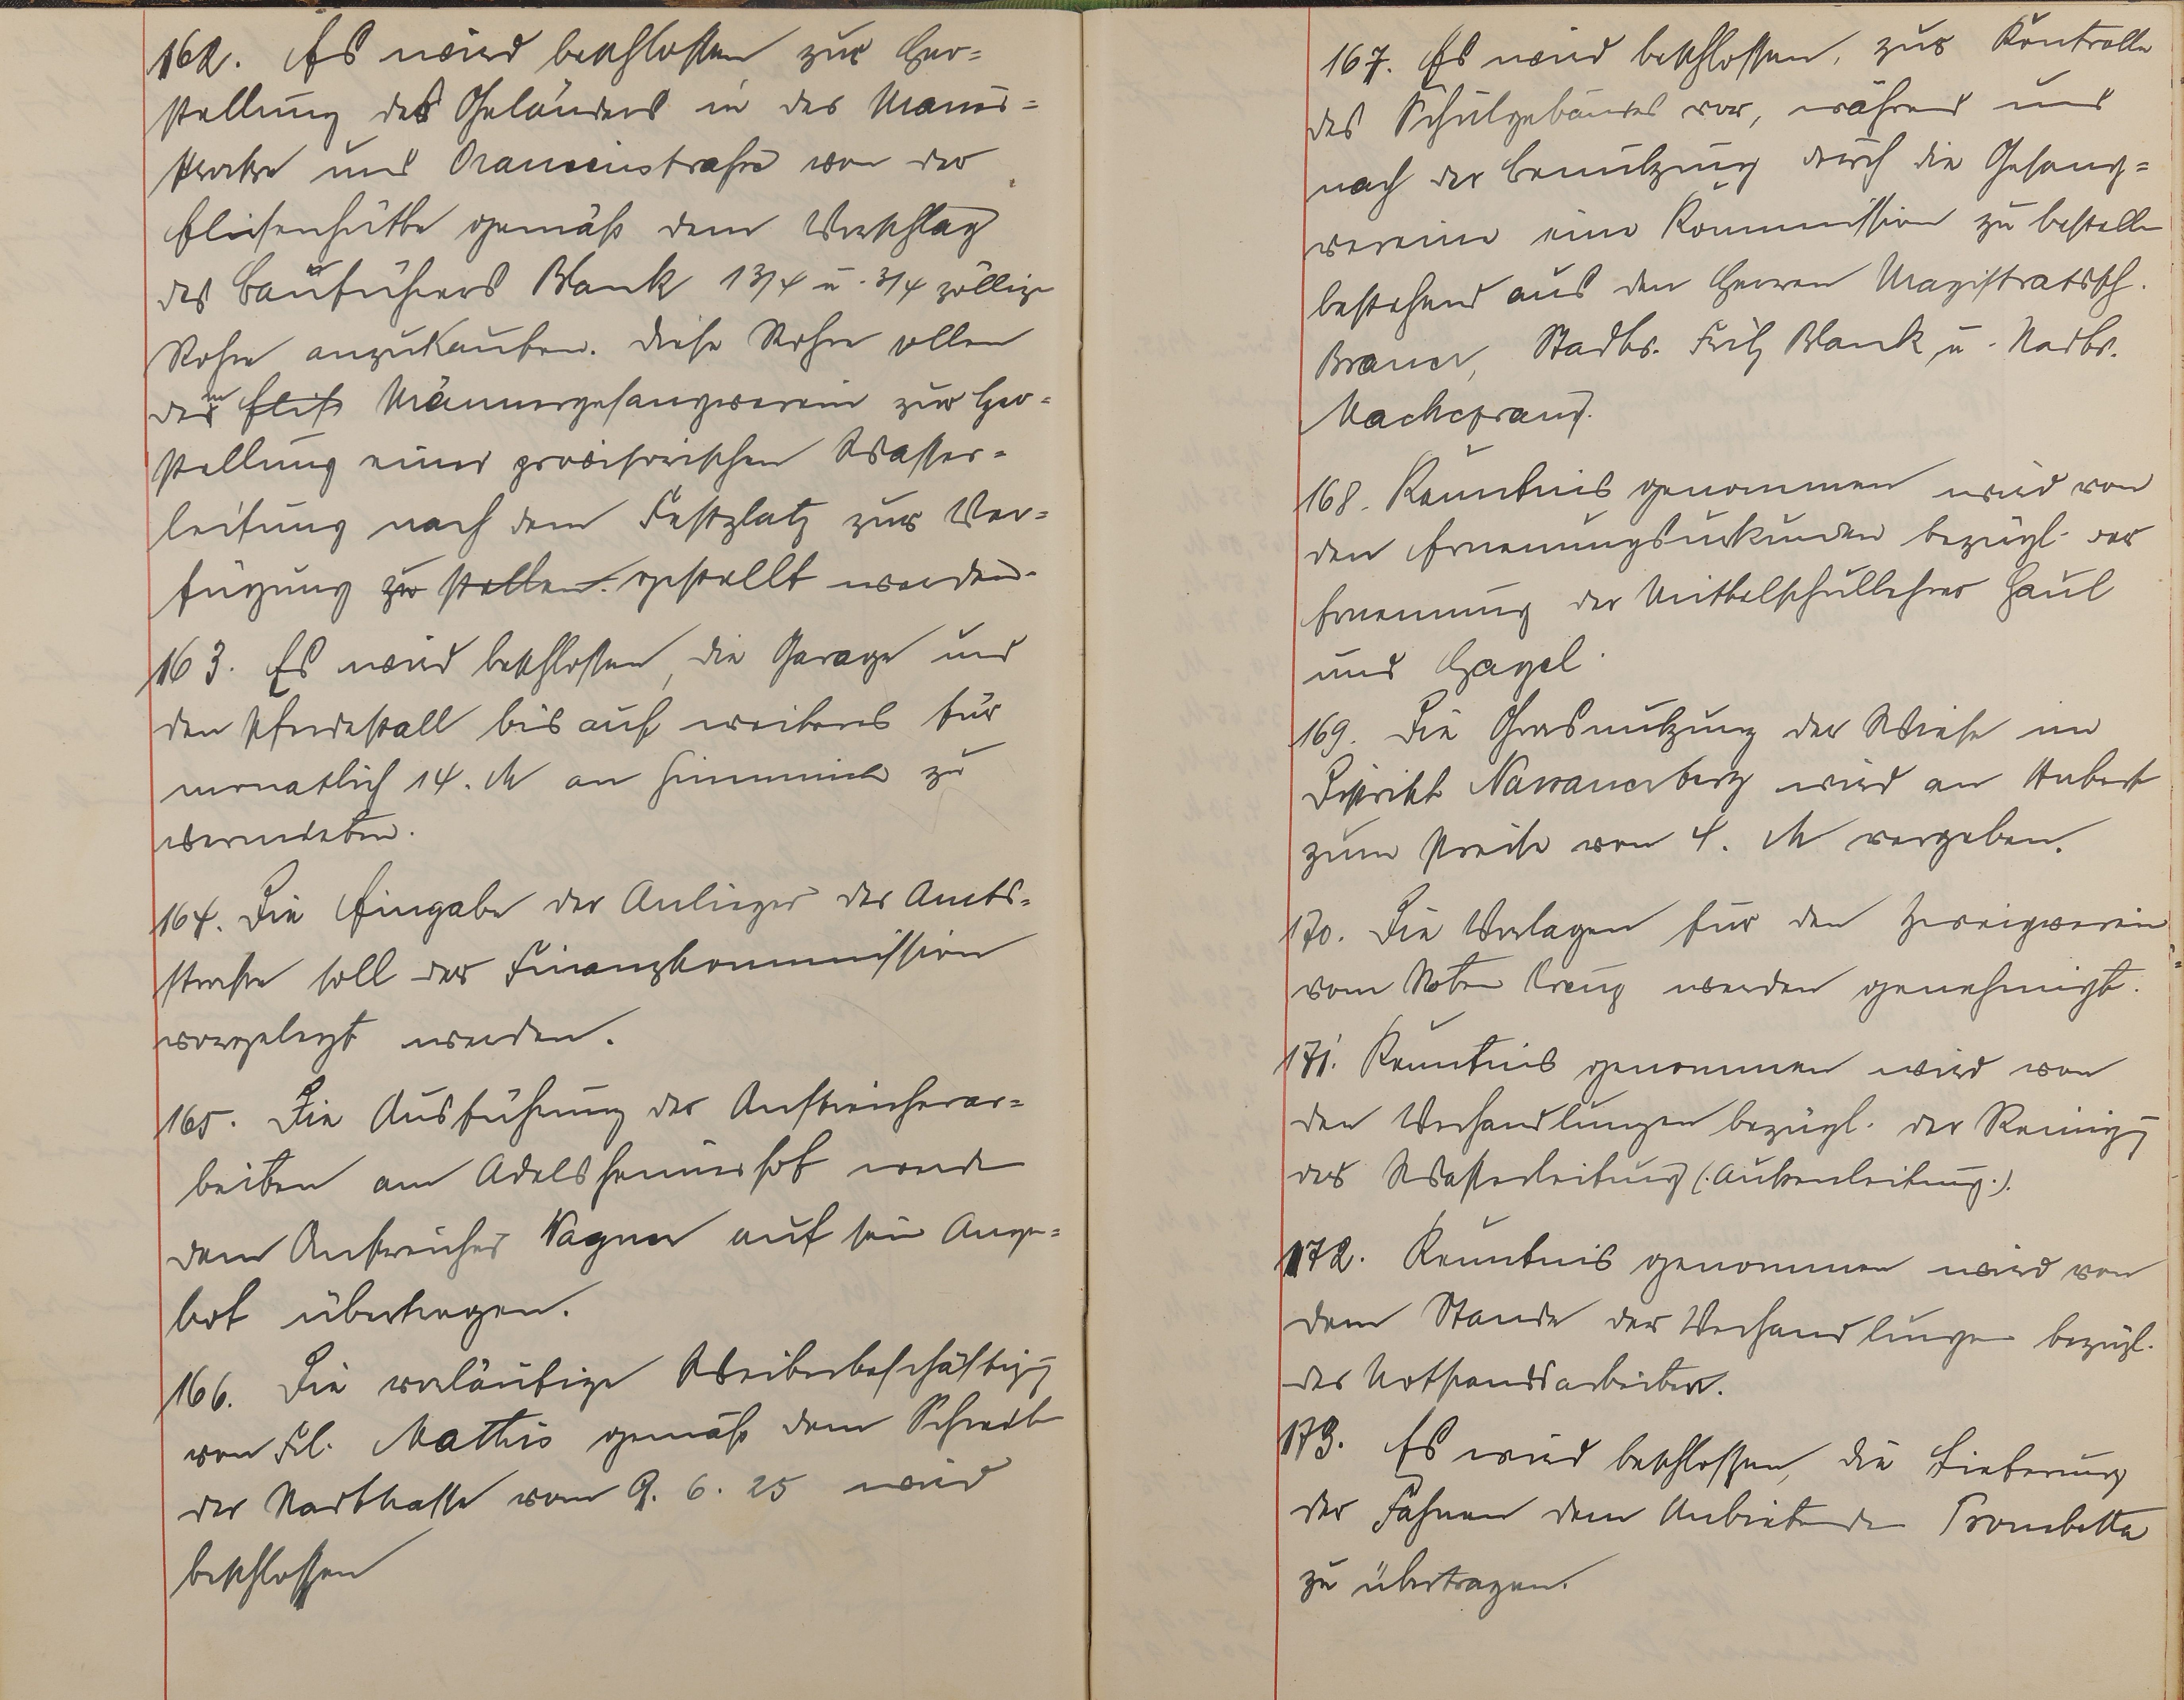 162. Es wird beschlossen zur Her=
stellung des Geländers in der
straße und Oranienstraße von der
Elisenhütte gemäß dem Vorschlag
des Bauführers Blank 1 3/4 u. 3/4 zöllige
Rohre anzukaufen. Diese Rohre sollen
dem Elis Männergesangverein zur Her=
stellung einer provisorischen Wasser=
leitung nach dem Festplatz zur Ver=
fügung zu stellen. gestellt werden.
163. Es wird beschlossen, die Garage und
den Pferdestall bis auf weiteres für
monatlich 14. M an zu
vermieten.
164. Die Eingabe der Anlieger der Amts=
straße soll der Finanzkommission
vorgelegt werden.
165. Die Ausführung der Anstreicherar=
beiten am Adelsheimerhof werden
dem Anstreicher Wagner auf sein Ange=
bot übertragen.
166. Die vorläufige Weiterbeschäftigg
von Frl. Mathis gemäß dem Schreiben
der Stadtkasse vom 9. 6. 25 wird
beschlossen
167. Es wird beschlossen, zur Kontrolle
des Schulgebäudes vor, während und
nach der Benutzung durch die Gesang=
vereine eine Kommission zu bestellen
bestehend aus den Herren Magistratssch.
Brauer, Stadtv. Fritz Blank u. Stadtv.
168. Kenntnis genommen wird von
den Ernennungsurkunden bezügl. der
Ernennung der Mittelschullehrer Paul
und Hagel.
169. Die Grasnutzung der Wiese im
Distrikt Nassauerberg wird an Hubert
zum Preise von 4. M vergeben.
170. Die Vorlagen für den Zweigverein
vom Roten Kreuz werden genehmigt.
171. Kenntnis genommen wird von
den Verhandlungen bezügl. der Reinigg
der Wasserleitung (Außenleitung.).
172. Kenntnis genommen wird von
dem Stande der Verhandlungen bezügl.
der Notstandsarbeiten.
173. Es wird beschlossen, die Lieferung
der Fahnen dem Anbietenden Trombetta
zu übertragen.